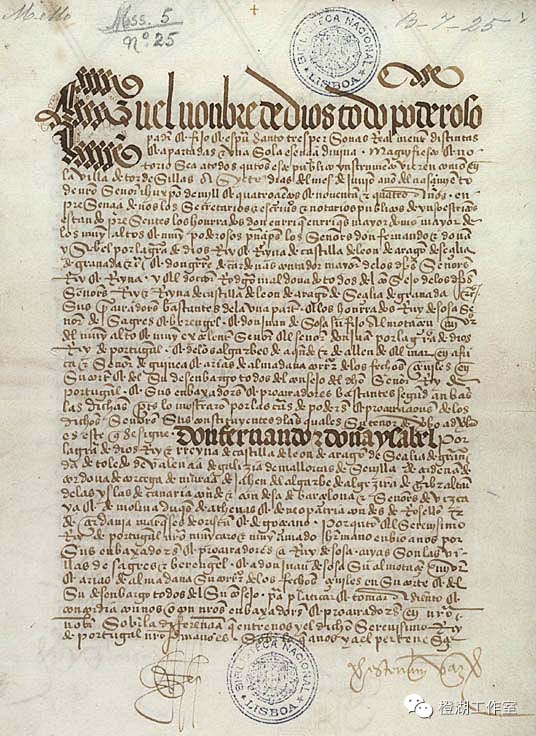 Mello
Mss. 5
nº. 25
B-7-25
BIBLIOTECA NACIONAL LISBOA
En el nonbre de dios todo poderoso
padre fijo espu santo tres personas realmente distintas
apartadas una sola esencia divina
notorio sea a todos quantos este publico ynstrumento vieren como en
la villa de tordesillas a siete dias del mes de junio año del nasçimiento
de nuestro señor de mill quatroçientos noventa quatro años en
presençia de nos los secretarios escrivanos notarios publicos
presentes los honrados don enrique enriques mayordomo mayor de
los muy altos muy poderosos prinçipes los señores don fernando doña
ysabel por la graçia de dios Rey Reyna de castilla de leon de aragon de seçilia
de granada don gutierre de cardenas contador mayor de los dichos señores
Rey Reyna el doctor Rodrigo maldonado todos del consejo de los dichos
señores Rey Reyna de castilla de leon de aragon de seçilia de granada
sus procuradores bastantes de la una parte los honrados Ruy de sosa señor
de sagres berengel don juan de sosa su fijo almotaçen
del muy alto muy exçelente señor el señor don juan por la graçia de dios
Rey de portugal de los algarbes de aquende de allende el mar en africa
señor de guinea arias de almadana
del su desenbargo todos del consejo del dicho señor Rey de
portugal sus enbaxadores procuradores bastantes segund anbas
las dichas partes lo mostraron por las cartas de poderes procuraçiones de los
dichos señores sus constituyentes de las quales su tenor de verbo ad verbum
es este que se sigue don fernando doña ysabel por
la graçia de dios Rey Reyna de castilla de leon de aragon de seçilia de granada
de toledo de valençia de galizia de mallorcas de sevilla de çerdeña de
cordova de corçega de murçia de jahen del algarbe de algezira de gibraltar
de las yslas de canaria conde condesa de barçelona señores de vizcaya
de molina duques de athenas de neopatria condes de Rosellon
de çerdania marqueses de oristan de goçiano por quanto el serenisimo
Rey de portugal nuestro muy caro muy amado hermano enbio a nos por
sus enbaxadores procuradores a Ruy de sosa cuyas son las villas
de sagres berengel a don juan de sosa su almotaçen mayor
arias de almadana su corregidor de los fechos çeviles en su corte del
su desenbargo todos del su consejo para platicar tomar asiento
concordia con nos con nuestros enbaxadores procuradores en nuestro
nonbre sobre la diferençia que entre nos el dicho serenisimo Rey
de portugal nuestro hermano es sobre lo que a nos a el perteneçe
BIBLIOTECA NACIONAL LISBOA
橙湖工作室